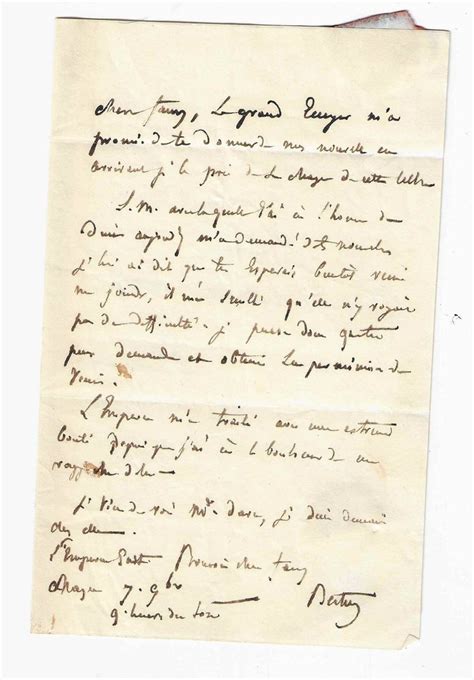 cher fanny, Le grand Ecuyer m'a
promi de te donner de mes nouvelle en
arrivant j' le prie de se charger de cette lettre
S.M. avec laquelle j'ai à l'honneur de
diner aujourd m'a demandé des nouvelles
j' lui ai dit que tu Esperais bientôt venir
me joindre, il m'a semblé qu'elle n'y voyait
pas de difficulté. j' pense donc que tu
peux demander et obtenir la permission de
venir.
L'Empereur m'a traité avec une extreme
bonté depuis que j'ai à le bonheur de me
rapprocher de lui
j' vien de voir Md. dare, j' dois demain
chez elle.
L'Empereur part Bonsoir cher fany
7. 9br
9. heures du soir